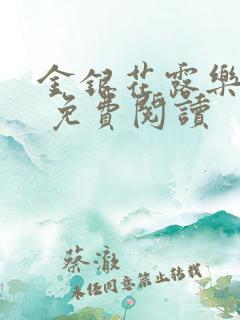 金銀花露樂
免費閱讀
蔡澈
未经同意禁止转载